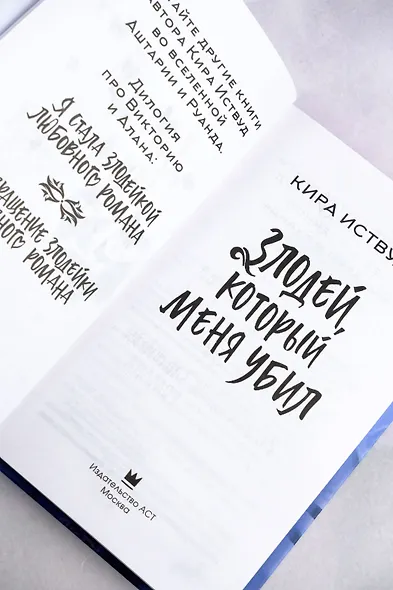 АЙТЕ ДРУГИЕ КНИГИ
АВТОРА КИРА ИСТВУД
ВО ВСЕЛЕННОЙ
АШТАРИИ И РУАНДА.
ДИЛОГИЯ
ПРО ВИКТОРИЮ
И АЛАНА:
Я СТАЛА ЗЛОДЕЙКОЙ
ЛЮБОВНОГО РОМАНА
РАЩЕНИЕ ЗЛОДЕЙКИ
ВНОГО РОМАНА
КИРА ИСТВУД
ЗЛОДЕЙ,
КОТОРЫЙ
МЕНЯ УБИЛ
Издательство АСТ
Москва